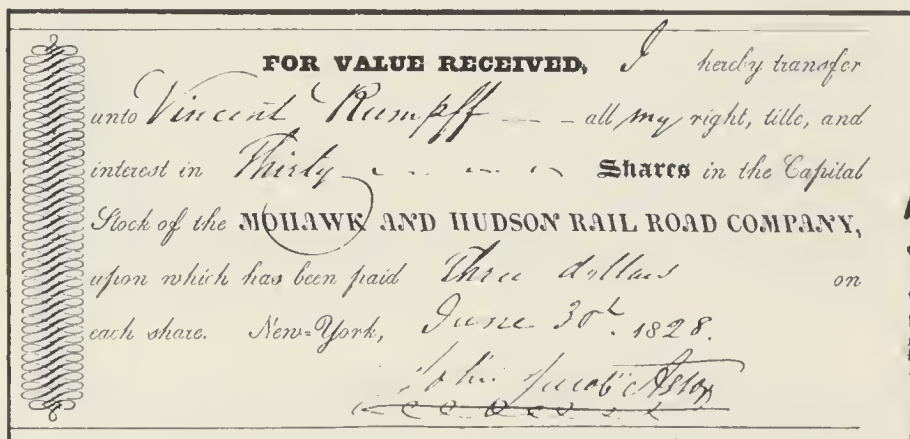 FOR VALUE RECEIVED, I hereby transfer
unto Vincent Rumpff — — all my right, title, and
interest in Thirty Shares in the Capital
Stock of the MOHAWK AND HUDSON RAIL ROAD COMPANY,
upon which has been paid Three dollars on
each share. New=York, June 30th. 1828.
John Jacob Astor